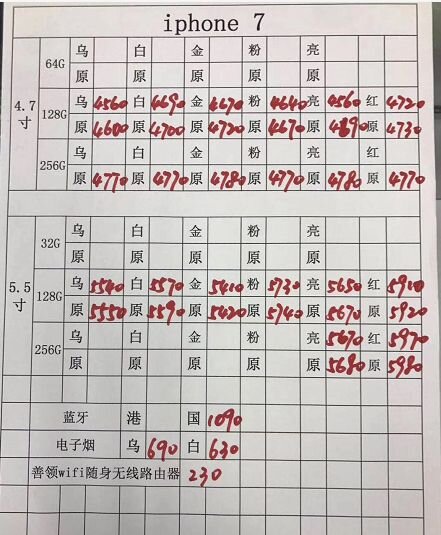 iphone 7
4.7寸 64G 乌 白 金 粉 亮
原 原 原 原 原
128G 乌 4560 白 4690 金 4670 粉 4640 亮 4560 红 4720
原 4600 原 4700 原 4720 原 4670 原 4690 原 4730
256G 乌 白 金 粉 亮 红
原 4770 原 4770 原 4780 原 4770 原 4780 原 4770
5.5寸 32G 乌 白 金 粉 亮
原 原 原 原 原
128G 乌 5540 白 5570 金 5410 粉 5730 亮 5650 红 5910
原 5550 原 5590 原 5420 原 5740 原 5670 原 5920
256G 乌 白 金 粉 亮 5670 红 5970
原 原 原 原 原 5680 原 5980
蓝牙 港 国 1090
电子烟 乌 690 白 630
善领wifi随身无线路由器 230